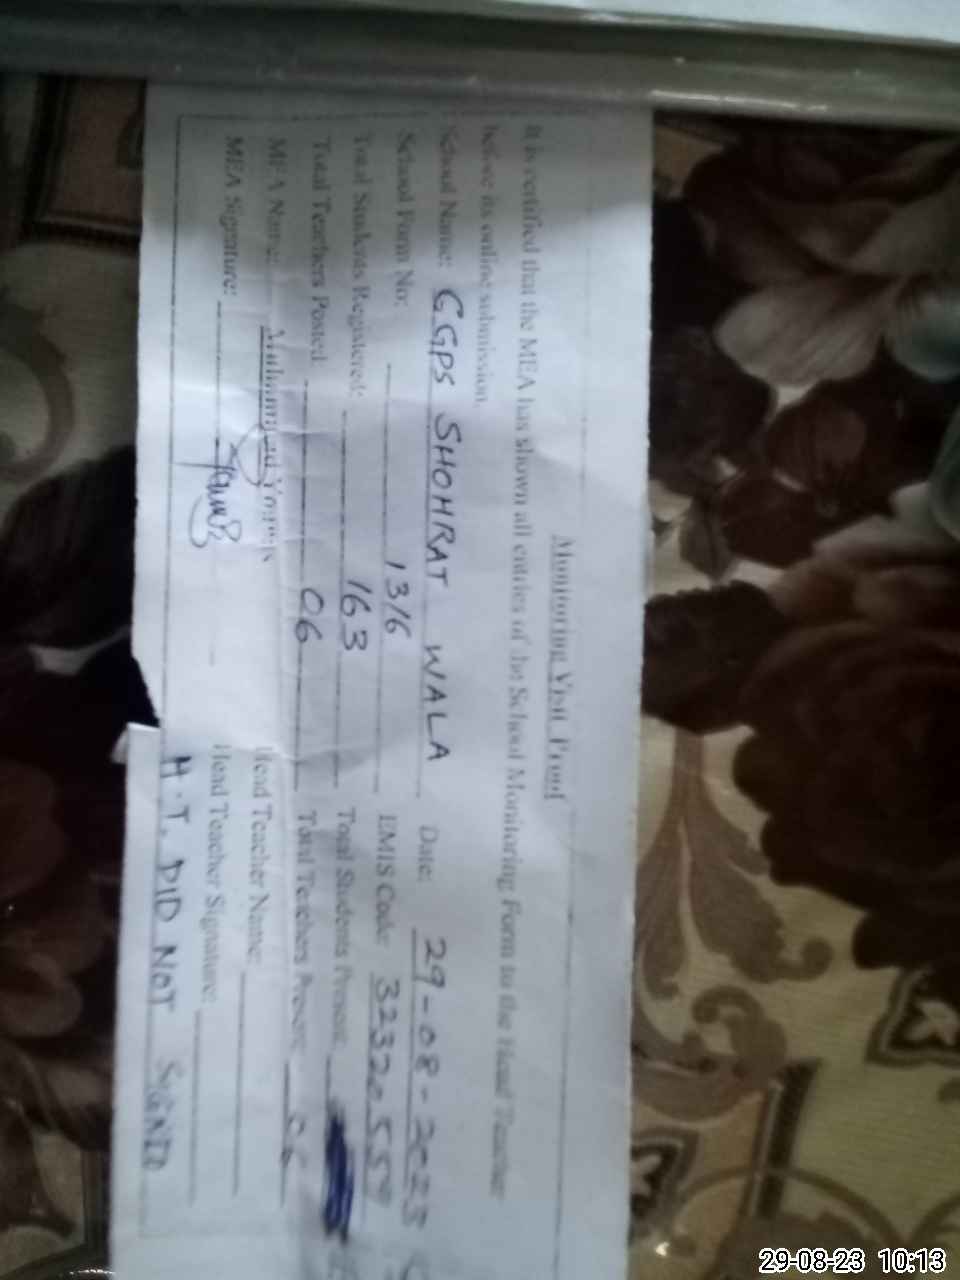 Monitoring Visit Proof
It is certified that the MEA has shown all entries of the School Monitoring Form to the Head Teacher
before its online submission.
School Name: GGPS SHOHRAT WALA Date: 29-08-2023
School Form No: 1316 EMIS Code: 32320559
Total Students Registered: 163 Total Students Present:
Total Teachers Posted: 06 Total Teachers Present: 06
MEA Name: Muhammad Younis Head Teacher Name:
MEA Signature: Head Teacher Signature:
H.T. DID NOT SIGNED
29-08-23 10:13